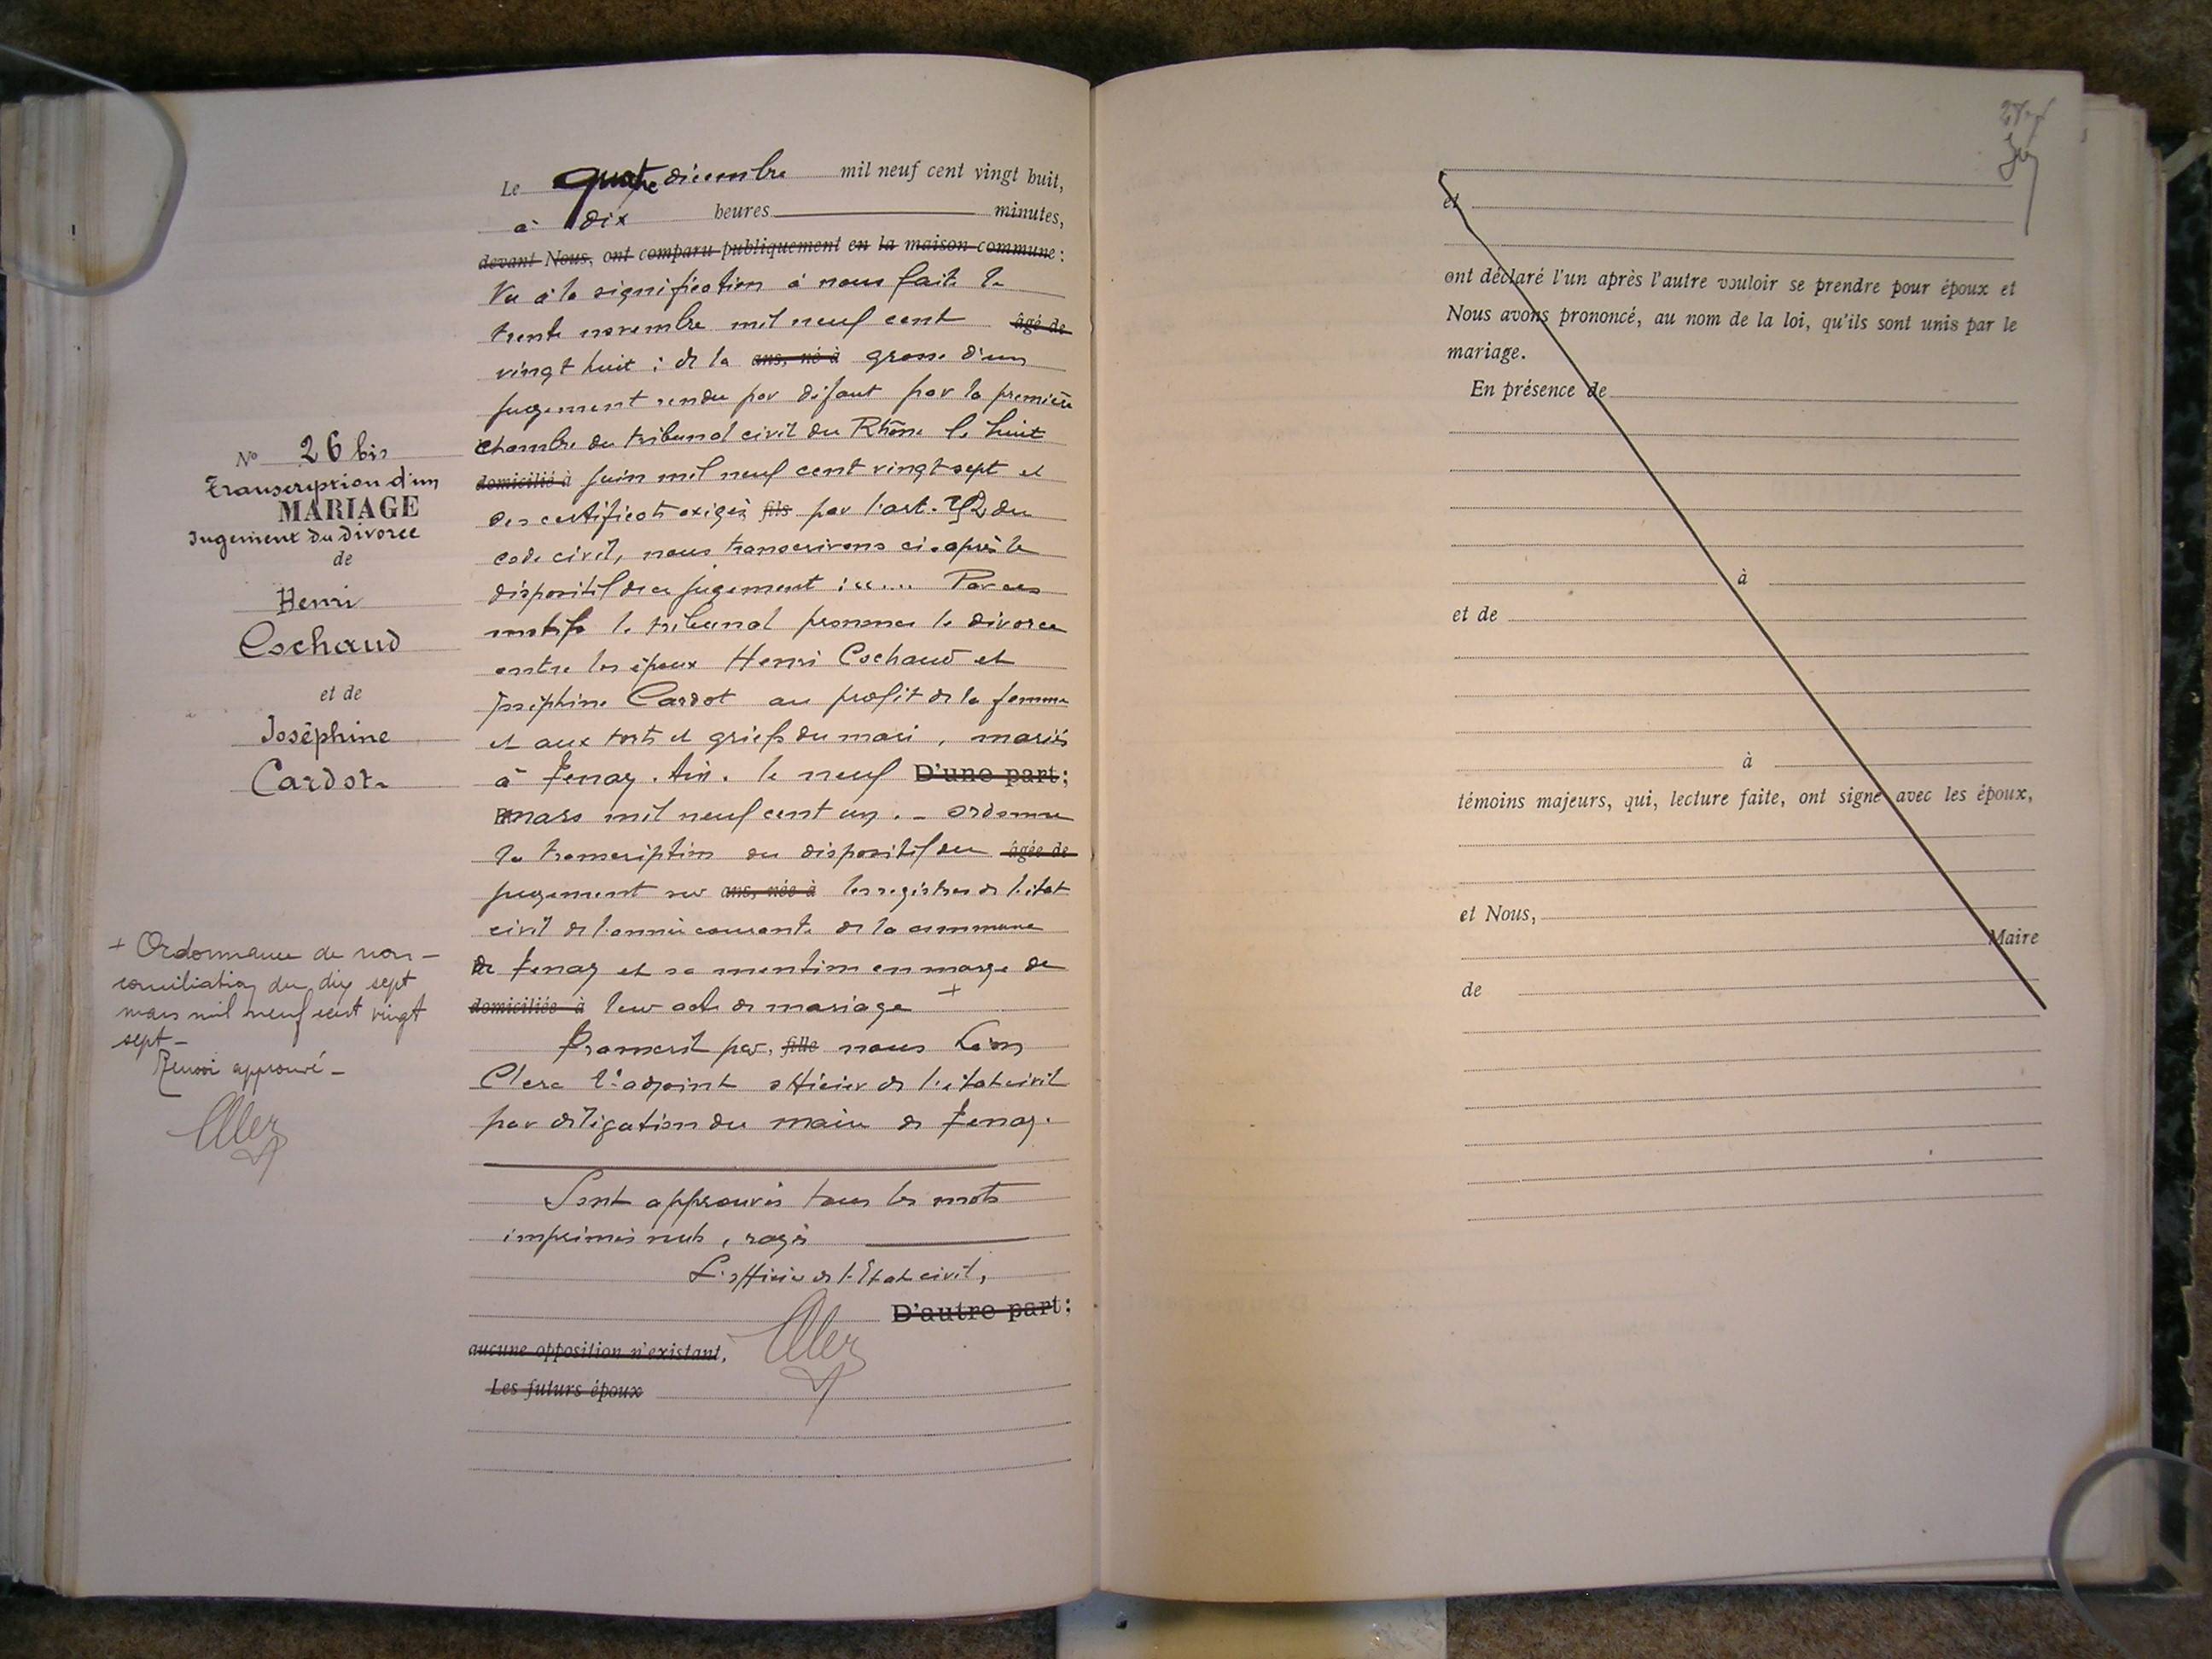 N° 26 bis
Transcription d'un
MARIAGE
Jugement du divorce
de
Henri
Cochaud
et de
Joséphine
Cardot
+ Ordonnance de non-
conciliation du dix sept
mars mil neuf cent vingt
sept -
Renvoi approuvé -
Le quatre décembre mil neuf cent vingt huit,
à dix heures minutes,
devant Nous, ont comparu publiquement en la maison commune :
Vu à la signification à nous faite le
trente novembre mil neuf cent âgé de
vingt huit : de la ans, né à grosse d'un
jugement rendu par défaut par la première
chambre du tribunal civil du Rhône le huit
domicilié à juin mil neuf cent vingt sept et
des certificats exigés fils par l'art. 252 du
code civil, nous transcrivons ci-après le
dispositif de ce jugement : «.... Par ces
motifs le tribunal prononce le divorce
entre les époux Henri Cochaud et
Joséphine Cardot au profit de la femme
et aux torts et griefs du mari, mariés
à Tenay. Ain. le neuf D'une part;
mars mil neuf cent un. - ordonne
la transcription du dispositif du âgée de
jugement sur ans, née à les registres de l'état
civil de l'année courante de la commune
de Tenay et sa mention en marge de
domiciliée à leur acte de mariage +
Transcrit par, fille nous Léon
Clerc 1er adjoint officier de l'état civil
par délégation du maire de Tenay.
Sont approuvés tous les mots
imprimés nuls, rayés
L'officier de l'Etat civil,
D'autre part;
aucune opposition n'existant,
Les futurs époux
et
ont déclaré l'un après l'autre vouloir se prendre pour époux et
Nous avons prononcé, au nom de la loi, qu'ils sont unis par le
mariage.
En présence de
à
et de
à
témoins majeurs, qui, lecture faite, ont signé avec les époux,
et Nous,
Maire
de